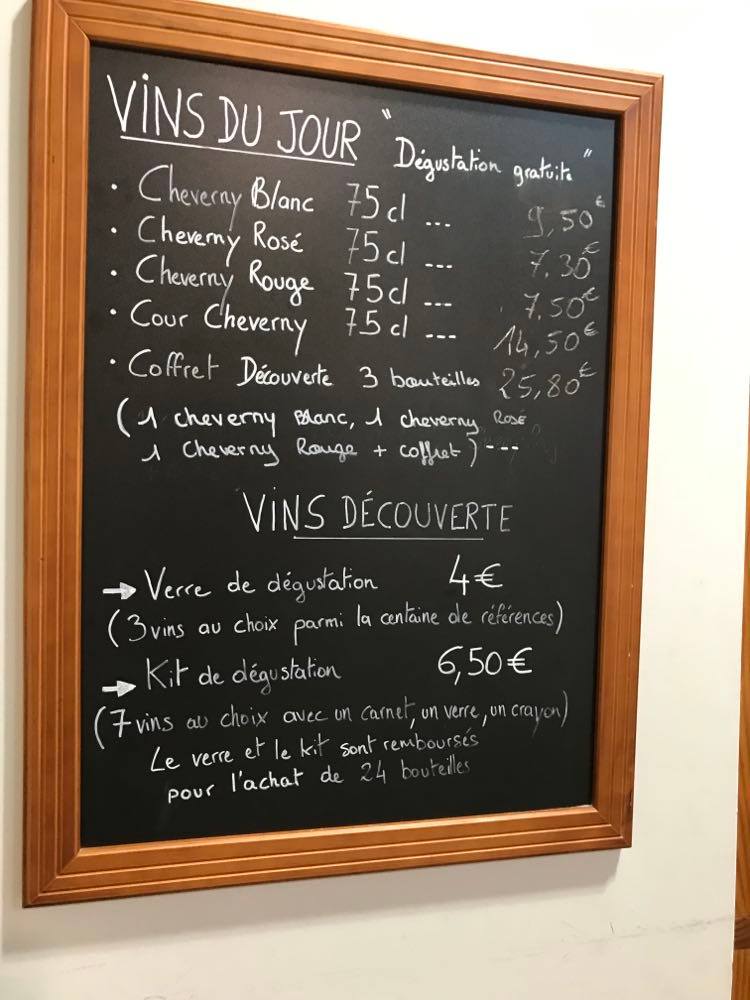 VINS DU JOUR "Dégustation gratuite"
· Cheverny Blanc 75 cl --- 9,50€
· Cheverny Rosé 75 cl --- 7.30€
· Cheverny Rouge 75 cl --- 7.50€
· Cour Cheverny 75 cl --- 14,50€
· Coffret Découverte 3 bouteilles 25,80€
(1 cheverny Blanc, 1 cheverny Rosé
1 Cheverny Rouge + coffret) ---
VINS DÉCOUVERTE
→ Verre de dégustation 4€
(3 vins au choix parmi la centaine de références)
→ Kit de dégustation 6,50€
(7 vins au choix avec un carnet, un verre, un crayon)
Le verre et le kit sont remboursés
pour l'achat de 24 bouteilles